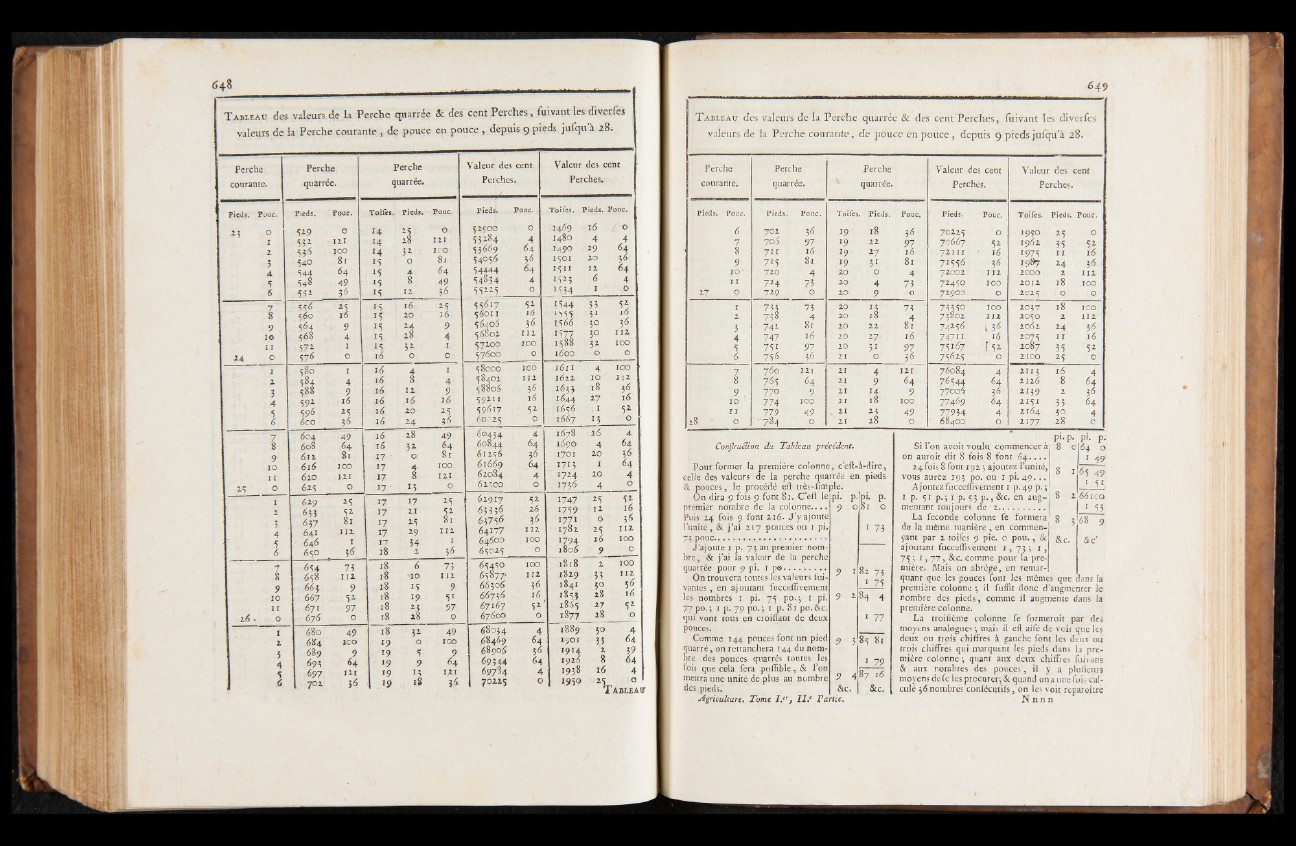 648
TABLEAU des valeurs de la Perche quarrée & des cent Perches, suivant les diverses
valeurs de la Perche courante, de pouce en pouce, depuis 9 pieds jusqu'à 28.
Perche courante. Perche quarrée. Perche quarrée. Valeur des cent Perches. Valeur des cent Perches.
Pieds. Pouc. Pieds. Pouc. Toises. Pieds. Pouc. Pieds. Pouc. Toises. Pieds. Pouc.
23 0 529 0 14 25 0 52900 0 1469 16 0
1 532 121 14 28 121 53284 4 1480 4 4
2 536 100 14 32 100 53669 64 1490 29 64
3 540 81 15 0 81 54056 36 1501 20 36
4 544 64 15 4 64 54444 64 1512 12 64
5 548 49 15 8 49 54834 4 1523 6 4
6 552 36 15 12 36 55225 0 1534 1 0
7 556 25 15 16 25 55617 52 1544 33 52
8 560 16 15 20 16 56011 16 1555 31 16
9 564 9 15 24 9 56406 36 1566 30 36
10 568 4 15 28 4 56802 112 1577 30 112
11 572 1 15 32 1 57200 100 1588 32 100
24 0 576 0 16 0 0 57600 0 1600 0 0
1 580 1 16 4 1 58000 100 1611 4 100
2 584 4 16 8 4 58402 112 1622 10 112
3 588 9 16 12 9 58806 36 1633 18 36
4 592 16 16 16 16 59211 16 1644 27 16
5 596 25 16 20 25 59617 52 1656 1 52
6 600 36 16 24 36 60025 0 1667 13 0
7 604 49 16 28 49 60434 4 1678 26 4
8 608 64 16 32 64 60844 64 1690 4 64
9 612 81 17 0 81 61256 36 1701 20 36
10 616 100 17 4 100 61669 64 1713 1 64
11 620 121 17 8 121 62084 4 1724 20 4
25 0 625 0 17 13 0 62500 0 1736 4 0
1 629 25 17 17 25 62917 52 1747 25 52
2 633 52 17 21 52 63336 26 1759 12 16
3 637 81 17 25 81 63756 36 1771 0 36
4 641 112 17 29 112 64177 112 1782 25 112
5 646 1 17 34 1 64600 100 1794 16 100
6 650 36 18 2 36 65025 0 1806 9 0
7 654 73 18 6 73 65450 100 1818 2 100
8 658 112 18 10 112 65877 112 1829 33 112
9 663 9 18 15 9 66306 36 1841 30 36
10 667 52 18 19 51 66736 16 1853 28 16
11 671 97 18 23 97 67167 52 1865 27 52
26. 0 676 0 18 28 0 67600 0 1877 28 0
1 680 49 18 32 49 68034 4 1889 30 4
2 684 100 19 0 100 68469 64 1901 33 64
3 689 9 19 5 9 68906 36 1914 2 39
4 693 64 19 9 64 69344 64 1926 8 64
5 697 121 19 13 121 69784 4 1938 16 4
6 702 36 19 18 36 70225 0 1950 25 0
TABLEAU
649
TABLEAU des valeurs de la Perche quarrée & des cent Perches, suivant les diverses
valeurs de la Perche courante, de pouce en pouce, depuis 9 pieds jusqu'à 28.
Perche courante. Perche quarrée. Perche quarrée. Valeur des cent Perches. Valeur des cent Perches.
Pieds. Pouc. Pieds. Pouc. Toises. Pieds. Pouc. Pieds. Pouc. Toises. Pieds. Pouc.
6 702 36 19 18 36 70225 0 1950 25 0
7 706 97 19 22 97 70667 52 1962 35 52
8 711 16 19 27 16 72111 16 1975 11 16
9 715 81 19 31 81 71556 36 1987 24 36
10 720 4 20 0 4 72002 112 2000 2 112
11 724 73 20 4 73 72450 100 2012 18 100
27 0 729 0 20 9 0 72900 0 2025 0 0
1 733 73 20 13 73 73350 100 2037 18 100
2 738 4 20 18 4 73802 112 2050 2 112
3 742 81 20 22 81 74256 36 2062 24 36
4 747 16 20 27 16 74711 16 2075 11 16
5 751 97 20 31 97 75167 52 2087 35 52
6 756 36 21 0 36 75625 0 2100 25 0
7 760 121 21 4 121 76084 4 2113 16 4
8 765 64 21 9 64 76544 64 2126 8 64
9 770 9 21 14 9 77006 36 2139 2 36
10 774 100 21 18 100 77469 64 2151 33 64
11 779 49 21 23 49 77934 4 2164 30 4
28 0 784 0 21 28 0 68400 0 2177 28 0
Construction du Tableau précédent.
Pour former la première colonne, c'est-à-dire,
celle des valeurs de la perche quarrée en pieds
& pouces, le procédé est très-simple.
On dira 9 fois 9 font 81. C'est le
premier nombre de la colonne....
Puis 24 fois 9 font 216. J'y ajoute
l'unité, & j'ai 217 pouces ou 1 pi.
73 pouc.....................
J'ajoute 1 p. 73 au premier nom-
bre, & j'ai la valeur de la perche
quarrée pour 9 pi. 1 po.........
On trouvera toutes les valeurs sui-
vantes, en ajoutant successivement
les nombres 1 pi. 75 po.; 1 pi.
77 po.; 1 p. 79 po.; 1 p. 81 po. &c.
qui vont tous en croissant de deux
pouces.
Comme 144 pouces font un pied
quarré, on retranchera 144 du nom-
bre des pouces quarrés toutes les
fois que cela sera possible, & l'on
mettra une unité de plus au nombre
des pieds.
pi. p. pi. p.
9 0 81 0
1 73
9 1 82 73
1 75
9 2 84 4
1 77
9 3 85 81
1 79
9 4 87 16
&c. &c.
Agriculture. Tome I.er, II.e Partie.
Si l'on avoit voulu commencer à
on auroit dit 8 fois 8 font 64....
24 fois 8 font 192; ajoutez l'unité,
vous aurez 193 po. ou 1 pi. 49...
Ajoutez successivement 1 p. 49 p.;
1 p. 51 p.; 1 p. 53 p., &c. en aug-
mentant toujours de 2..........
La seconde colonne se formera
de la même manière, en commen-
çant par 2 toises 9 pie. 0 pou., &
ajoutant successivement 1, 73; 1,
75; 1, 77, &c. comme pour la pre-
mière. Mais on abrège, en remar-
quant que les pouces sont les mêmes que dans la
première colonne; il suffit donc d'augmenter le
nombre des pieds, comme il augmente dans la
première colonne.
La troisième colonne se formeroit par des
moyens analogues; mais il est aisé de voir que les
deux ou trois chiffres à gauche sont les deux ou
trois chiffres qui marquent les pieds dans la pre-
mière colonne; quant aux deux chiffres suivans
& aux nombres des pouces, il y a plusieurs
moyens de se les procurer; & quand on a une fois cal-
culé 36 nombres consécutifs, on les voit reparoître
pi. p. pi. p.
8 0 64 0
1 49
8 1 65 49
1 51
8 2 66 100
1 53
8 3 68 9
&c. &c
N n n n